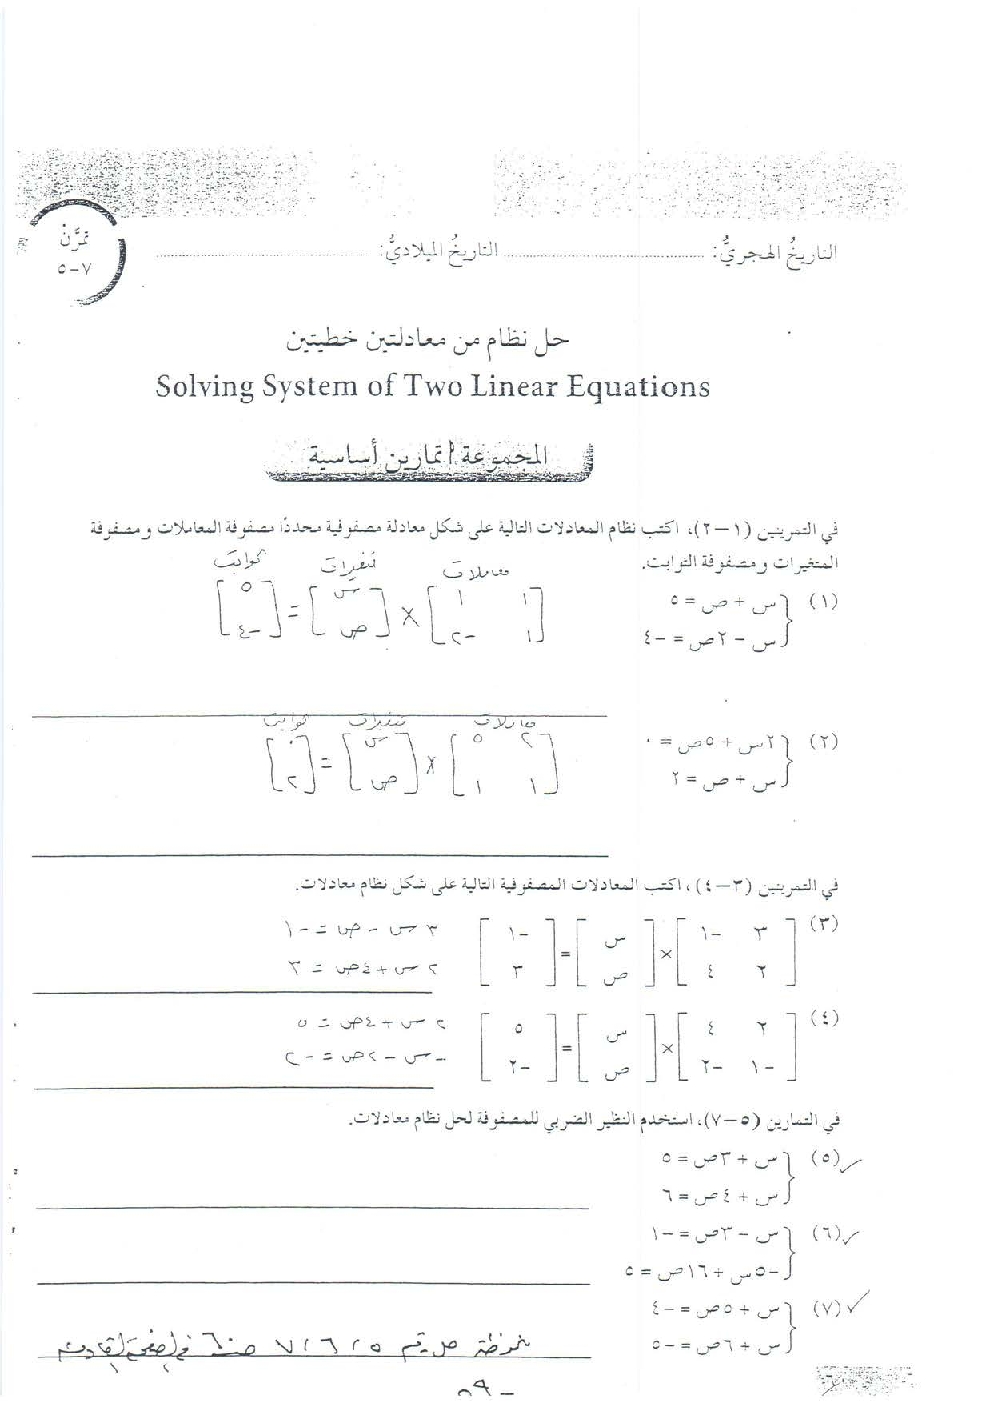 تمرَّنْ
٧-٥
التاريخُ الهجريُّ: ........ التاريخُ الميلاديُّ: ........
حل نظام من معادلتين خطيتين
Solving System of Two Linear Equations
المجموعة أ تمارين أساسية
في التمرينين (١-٢)، اكتب نظام المعادلات التالية على شكل معادلة مصفوفية محددًا مصفوفة المعاملات ومصفوفة
المتغيرات ومصفوفة الثوابت.
معاملات متغيرات ثوابت
(١) س + ص = ٥ [١ ١] × [س] = [٥]
س - ٢ص = -٤ [١ -٢] [ص] [-٤]
معاملات متغيرات ثوابت
(٢) ٢س + ٥ص = ٠ [٢ ٥] × [س] = [٠]
س + ص = ٢ [١ ١] [ص] [٢]
في التمرينين (٣-٤)، اكتب المعادلات المصفوفية التالية على شكل نظام معادلات.
(٣) [٣ -١] × [س] = [-١] ٣س - ص = -١
[٢ ٤] [ص] [٣] ٢س + ٤ص = ٣
(٤) [٢ ٤] × [س] = [٥] ٢س + ٤ص = ٥
[-١ -٢] [ص] [-٢] -س - ٢ص = -٢
في التمارين (٥-٧)، استخدم النظير الضربي للمصفوفة لحل نظام معادلات.
(٥) س + ٣ص = ٥
س + ٤ص = ٦
(٦) س - ٣ص = -١
-٥س + ١٦ص = ٥
(٧) س + ٥ص = -٤
س + ٦ص = -٥
حل رقم ٥، ٦، ٧